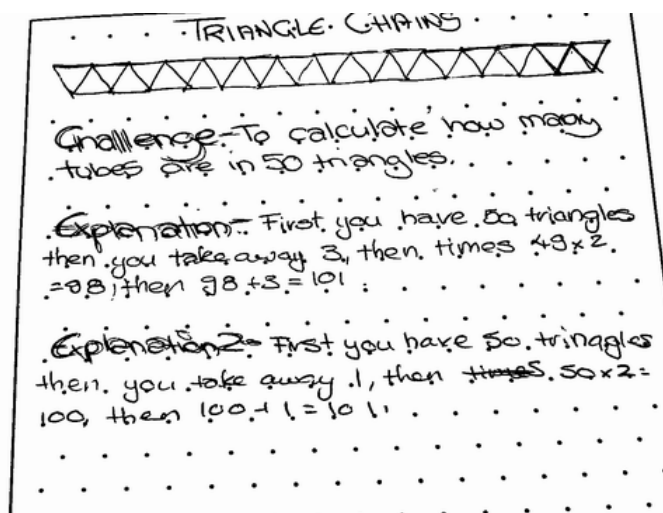 TRIANGLE CHAINS
Challenge-To calculate how many
tubes are in 50 triangles.
Explanation- First you have 50 triangles
then you take away 3, then times 49x2
=98, then 98+3=101
Explanation2- First you have 50 trinagles
then you take away 1, then times 50x2=
100, then 100+1=101